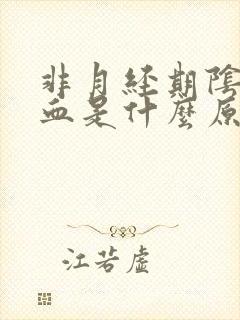 非月經期陰
血是什麼原
江若虛